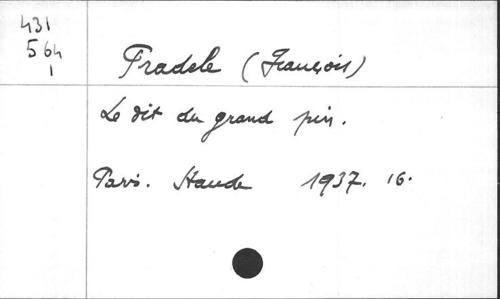 431
564
1
Pradele (François)
Le dit du grand pin.
Paris. Haude 1937. 16.